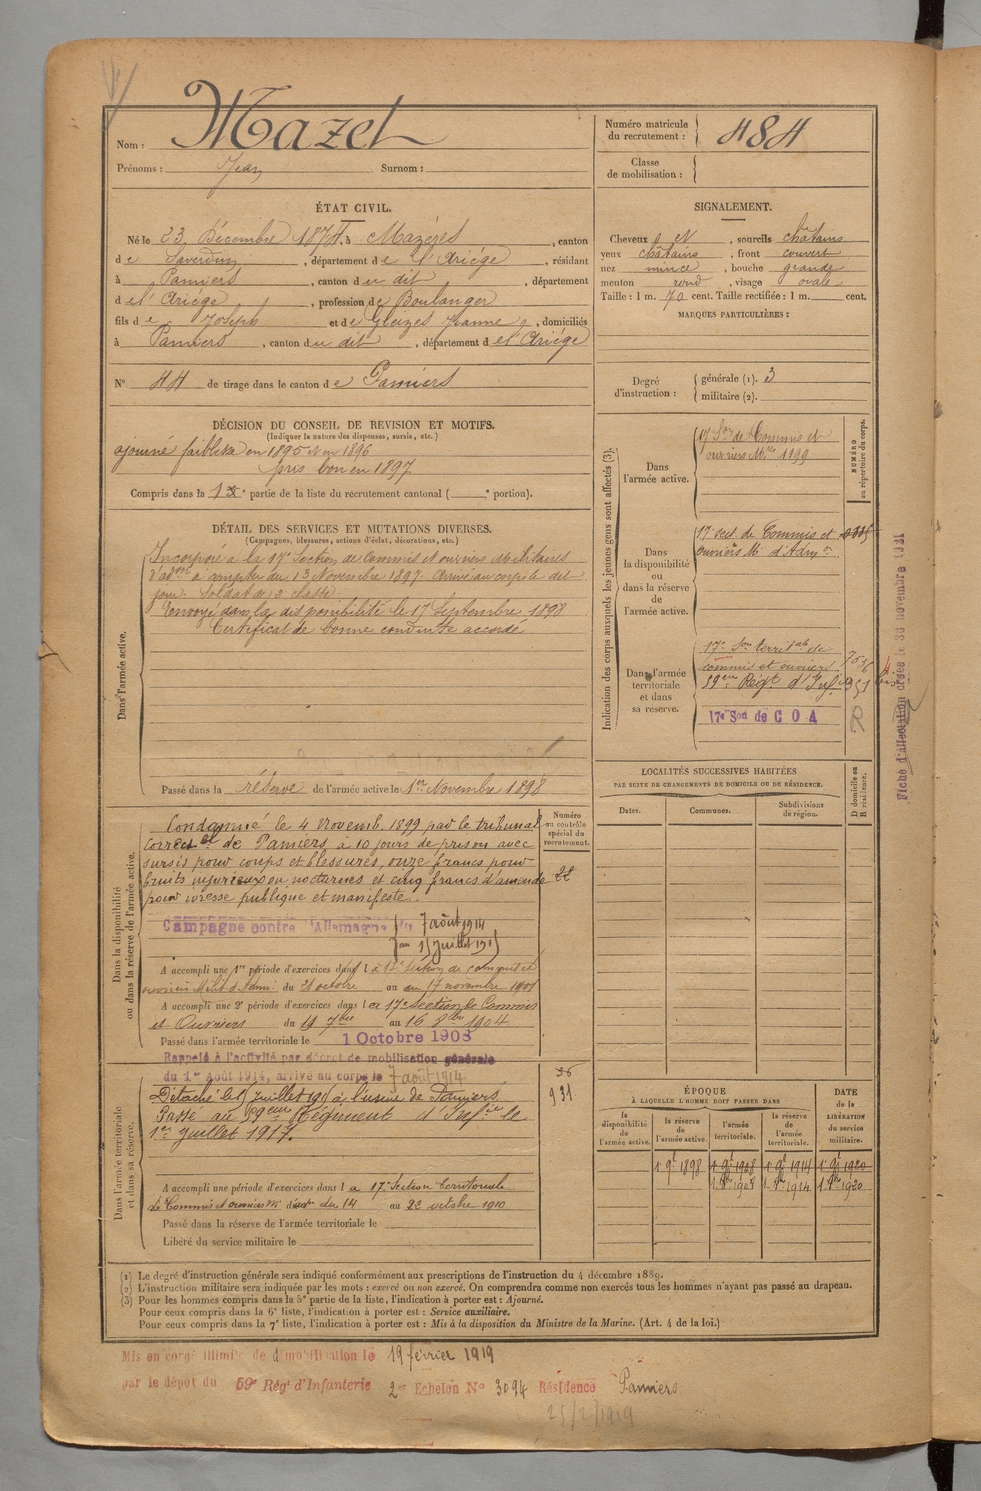 Nom : Mazet
Prénoms : Jean Surnom :
ÉTAT CIVIL.
Né le 23 Décembre 1874, à Mazères, canton
de Saverdun, département de l'Ariége, résidant
à Pamiers, canton du dit, département
de l'Ariége, profession de Boulanger
fils de Joseph et de Gleizes Jeanne, domiciliés
à Pamiers, canton du dit, département de l'Ariége
N° 44 de tirage dans le canton de Pamiers
DÉCISION DU CONSEIL DE REVISION ET MOTIFS.
(Indiquer la nature des dispenses, sursis, etc.)
ajourné faiblesse en 1895 et en 1896
pris bon en 1897
Compris dans la partie de la liste du recrutement cantonal ( ° portion).
DÉTAIL DES SERVICES ET MUTATIONS DIVERSES.
(Campagnes, blessures, actions d'éclat, décorations, etc.)
Dans l'armée active.
Incorporé à la 17e Section de Commis et ouvriers Militaires
d'adon à compter du 13 Novembre 1897. Arrivé au corps le dit
jour. Soldat de 2e classe
Envoyé dans la disponibilité le 17 Septembre 1898
Certificat de bonne conduite accordé
Passé dans la réserve de l'armée active le 1er Novembre 1898
Dans la disponibilité
ou dans la réserve de l'armée active.
Numéro
au contrôle
spécial du
recrutement.
Condamné le 4 Novemb. 1899 par le tribunal
correctel de Pamiers, à 10 jours de prison avec
sursis pour coups et blessures, onze francs pour
bruits injurieux ou nocturnes et cinq francs d'amende
pour ivresse publique et manifeste.
Campagne contre l'Allemagne du 7 août 1914
au 1 juillet 191
A accompli une 1re période d'exercices dans la 17e Section de commis et
ouvriers Milit. d'Admi. du 21 octobre au 17 novembre 1901
A accompli une 2e période d'exercices dans la 17e Section de Commis
et Ouvriers du 19 7bre au 16 8bre 1904
Passé dans l'armée territoriale le 1 Octobre 1908
Rappelé à l'activité par décret de mobilisation générale
du 1er Août 1914, arrivé au corps le 7 août 1914
Dans l'armée territoriale
et dans sa réserve.
931
Détaché le 1 juillet 191 à l'usine de Pamiers
Passé au 59eme Régiment d'Infie le
1er juillet 1917.
A accompli une période d'exercices dans la 17e Section territoriale
de Commis et ouvriers du 14 au 22 octobre 1910
Passé dans la réserve de l'armée territoriale le
Libéré du service militaire le
Numéro matricule
du recrutement : 484
Classe
de mobilisation :
SIGNALEMENT.
Cheveux et, sourcils châtains
yeux châtains, front couvert
nez mince, bouche grande
menton rond, visage ovale
Taille : 1 m. 70 cent. Taille rectifiée : 1 m. cent.
MARQUES PARTICULIÈRES :
Degré
d'instruction :
générale (1). 3
militaire (2).
Indication des corps auxquels les jeunes gens sont affectés (3).
NUMÉRO
au répertoire du corps.
Dans
l'armée active.
17e Son de Commis et
ouvriers Mle 1199
Dans
la disponibilité
ou
dans la réserve
de
l'armée active.
17 sect. de Commis et
ouvriers Mi d'Admon
Dans l'armée
territoriale
et dans
sa réserve.
17e Son territale de
commis et ouvriers
59eme Regt d'Inf.
17e Son de C O A
R
Fiche d'affectation créée le 30 novembre 1931
LOCALITÉS SUCCESSIVES HABITÉES
PAR SUITE DE CHANGEMENTS DE DOMICILE OU DE RÉSIDENCE.
Dates.
Communes.
Subdivisions
de région.
D domicile ou
R résidence.
ÉPOQUE
À LAQUELLE L'HOMME DOIT PASSER DANS
DATE
de la
LIBÉRATION
du service
militaire.
la
disponibilité
de
l'armée active.
la réserve
de
l'armée active.
l'armée
territoriale.
la réserve
de
l'armée
territoriale.
1 9t 1898 1 9t 1908 1 9t 1914 1 9t 1920
1908 1914 1920
(1) Le degré d'instruction générale sera indiqué conformément aux prescriptions de l'instruction du 4 décembre 1889.
(2) L'instruction militaire sera indiquée par les mots : exercé ou non exercé. On comprendra comme non exercés tous les hommes n'ayant pas passé au drapeau.
(3) Pour les hommes compris dans la 5e partie de la liste, l'indication à porter est : Ajourné.
Pour ceux compris dans la 6e liste, l'indication à porter est : Service auxiliaire.
Pour ceux compris dans la 7e liste, l'indication à porter est : Mis à la disposition du Ministre de la Marine. (Art. 4 de la loi.)
Mis en congé illimité de démobilisation le 19 février 1919
par le dépôt du 59e Régt d'Infanterie 2er Echelon N° 3094 Résidence Pamiers
25/2/1919